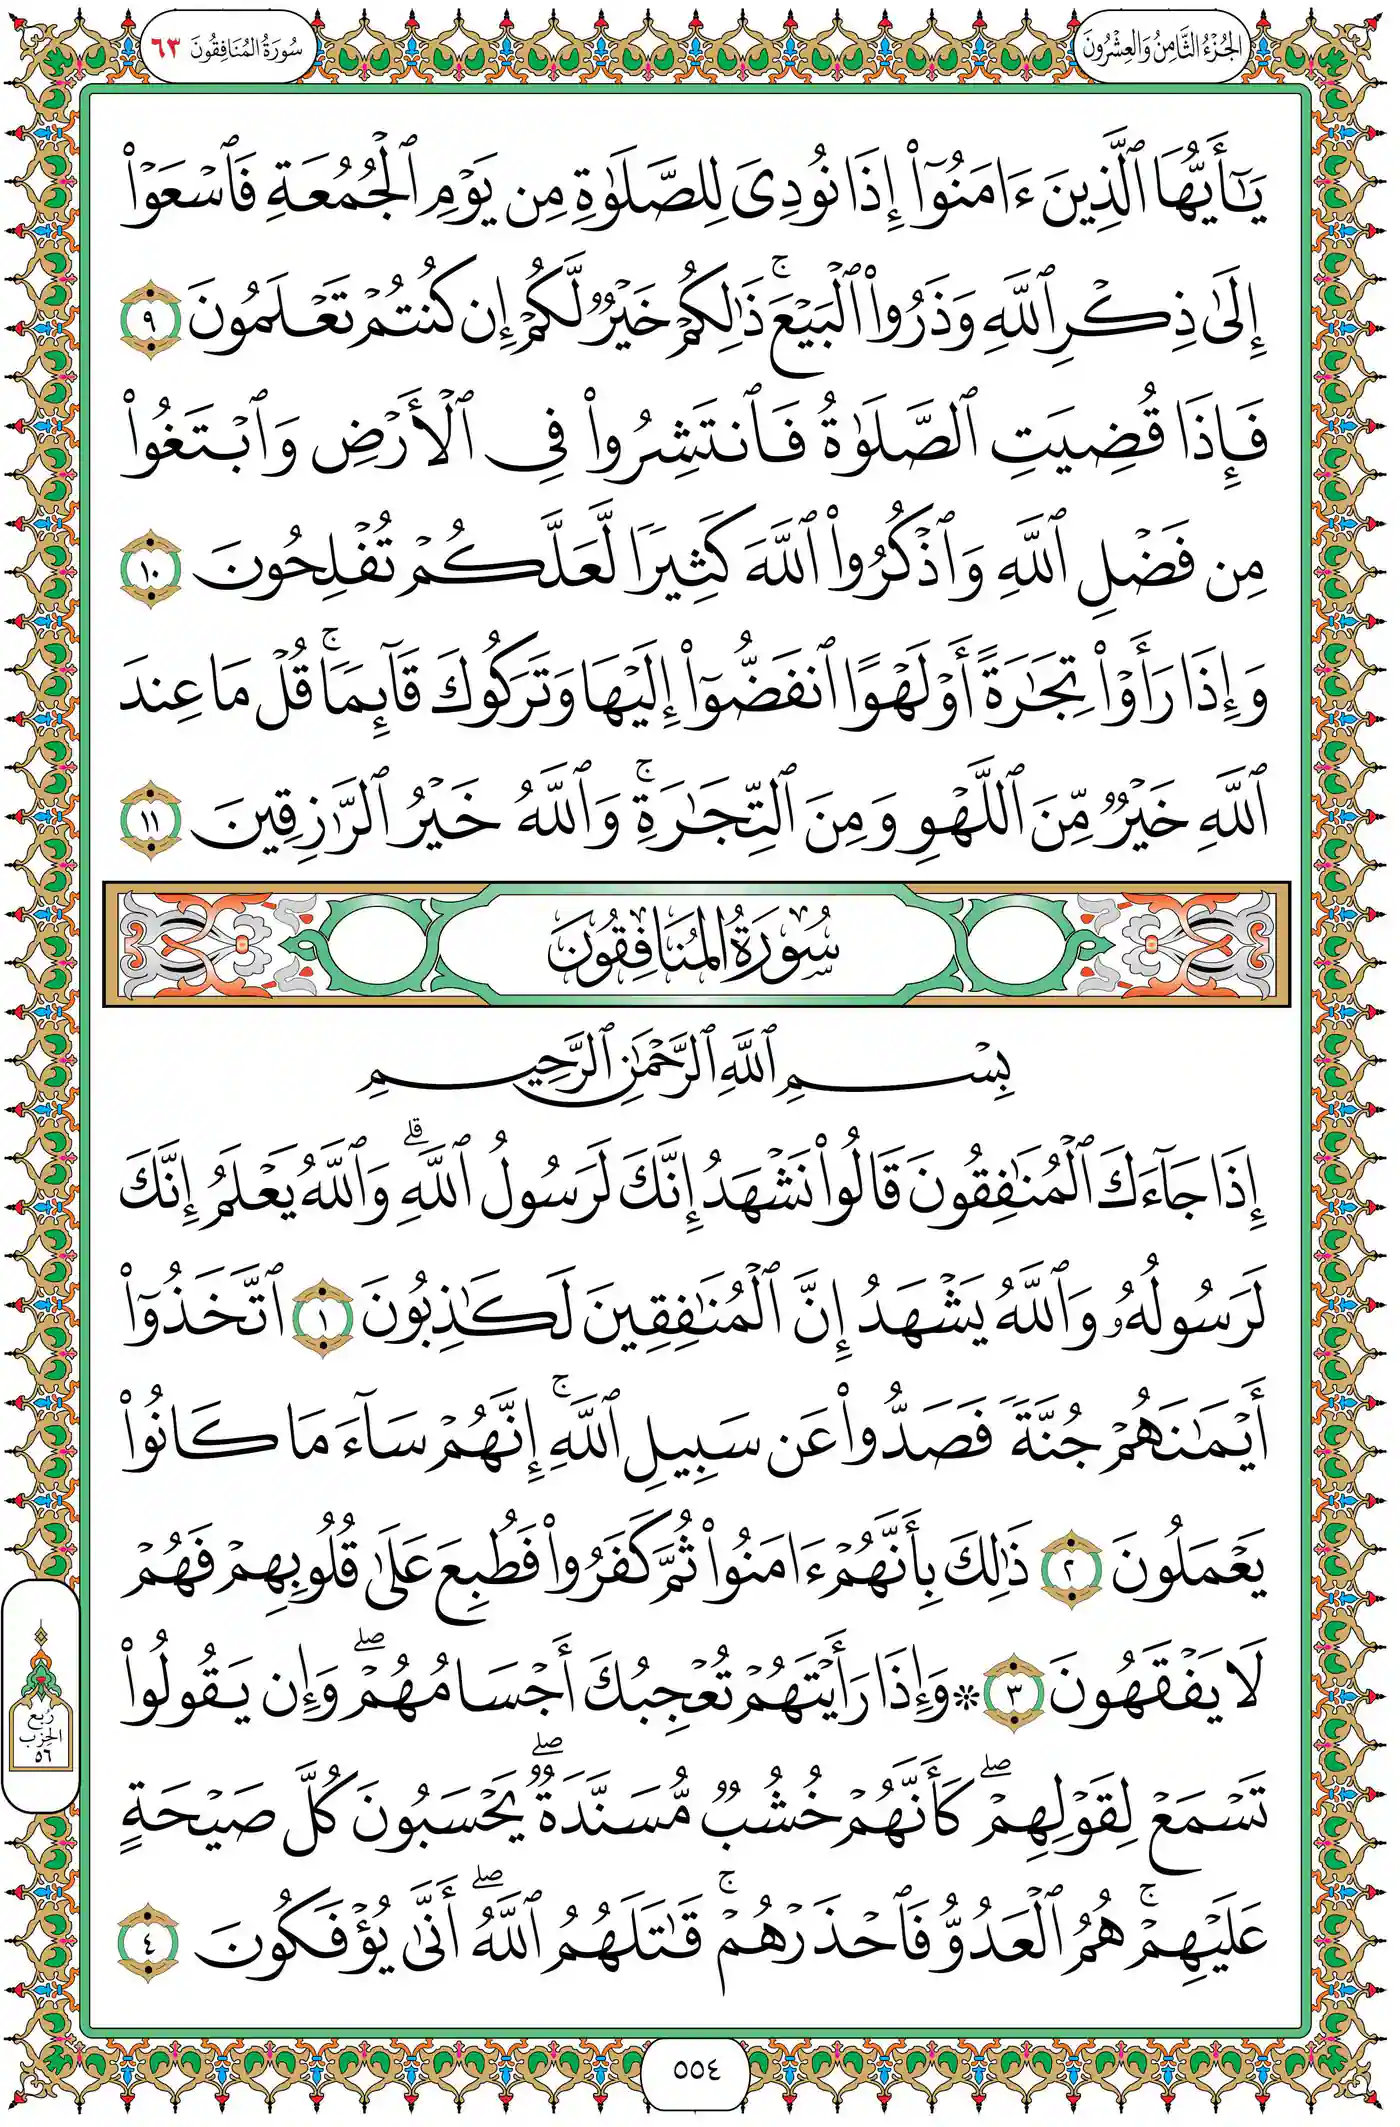 الجُزْءُ الثَّامِنُ وَالعِشْرُونَ
سُورَةُ المُنَافِقُونَ ٦٣
يَـٰٓأَيُّهَا ٱلَّذِينَ ءَامَنُوٓا۟ إِذَا نُودِىَ لِلصَّلَوٰةِ مِن يَوْمِ ٱلْجُمُعَةِ فَٱسْعَوْا۟
إِلَىٰ ذِكْرِ ٱللَّهِ وَذَرُوا۟ ٱلْبَيْعَ ۚ ذَٰلِكُمْ خَيْرٌ لَّكُمْ إِن كُنتُمْ تَعْلَمُونَ ٩
فَإِذَا قُضِيَتِ ٱلصَّلَوٰةُ فَٱنتَشِرُوا۟ فِى ٱلْأَرْضِ وَٱبْتَغُوا۟
مِن فَضْلِ ٱللَّهِ وَٱذْكُرُوا۟ ٱللَّهَ كَثِيرًا لَّعَلَّكُمْ تُفْلِحُونَ ١٠
وَإِذَا رَأَوْا۟ تِجَـٰرَةً أَوْ لَهْوًا ٱنفَضُّوٓا۟ إِلَيْهَا وَتَرَكُوكَ قَآئِمًا ۚ قُلْ مَا عِندَ
ٱللَّهِ خَيْرٌ مِّنَ ٱللَّهْوِ وَمِنَ ٱلتِّجَـٰرَةِ ۚ وَٱللَّهُ خَيْرُ ٱلرَّٰزِقِينَ ١١
سُورَةُ المُنَافِقُونَ
بِسْمِ ٱللَّهِ ٱلرَّحْمَـٰنِ ٱلرَّحِيمِ
إِذَا جَآءَكَ ٱلْمُنَـٰفِقُونَ قَالُوا۟ نَشْهَدُ إِنَّكَ لَرَسُولُ ٱللَّهِ ۗ وَٱللَّهُ يَعْلَمُ إِنَّكَ
لَرَسُولُهُۥ وَٱللَّهُ يَشْهَدُ إِنَّ ٱلْمُنَـٰفِقِينَ لَكَـٰذِبُونَ ١ ٱتَّخَذُوٓا۟
أَيْمَـٰنَهُمْ جُنَّةً فَصَدُّوا۟ عَن سَبِيلِ ٱللَّهِ ۚ إِنَّهُمْ سَآءَ مَا كَانُوا۟
يَعْمَلُونَ ٢ ذَٰلِكَ بِأَنَّهُمْ ءَامَنُوا۟ ثُمَّ كَفَرُوا۟ فَطُبِعَ عَلَىٰ قُلُوبِهِمْ فَهُمْ
لَا يَفْقَهُونَ ٣ ۞ وَإِذَا رَأَيْتَهُمْ تُعْجِبُكَ أَجْسَامُهُمْ ۖ وَإِن يَقُولُوا۟
تَسْمَعْ لِقَوْلِهِمْ ۖ كَأَنَّهُمْ خُشُبٌ مُّسَنَّدَةٌ ۖ يَحْسَبُونَ كُلَّ صَيْحَةٍ
عَلَيْهِمْ ۚ هُمُ ٱلْعَدُوُّ فَٱحْذَرْهُمْ ۚ قَـٰتَلَهُمُ ٱللَّهُ ۖ أَنَّىٰ يُؤْفَكُونَ ٤
رُبع
الحِزب
٥٦
٥٥٤